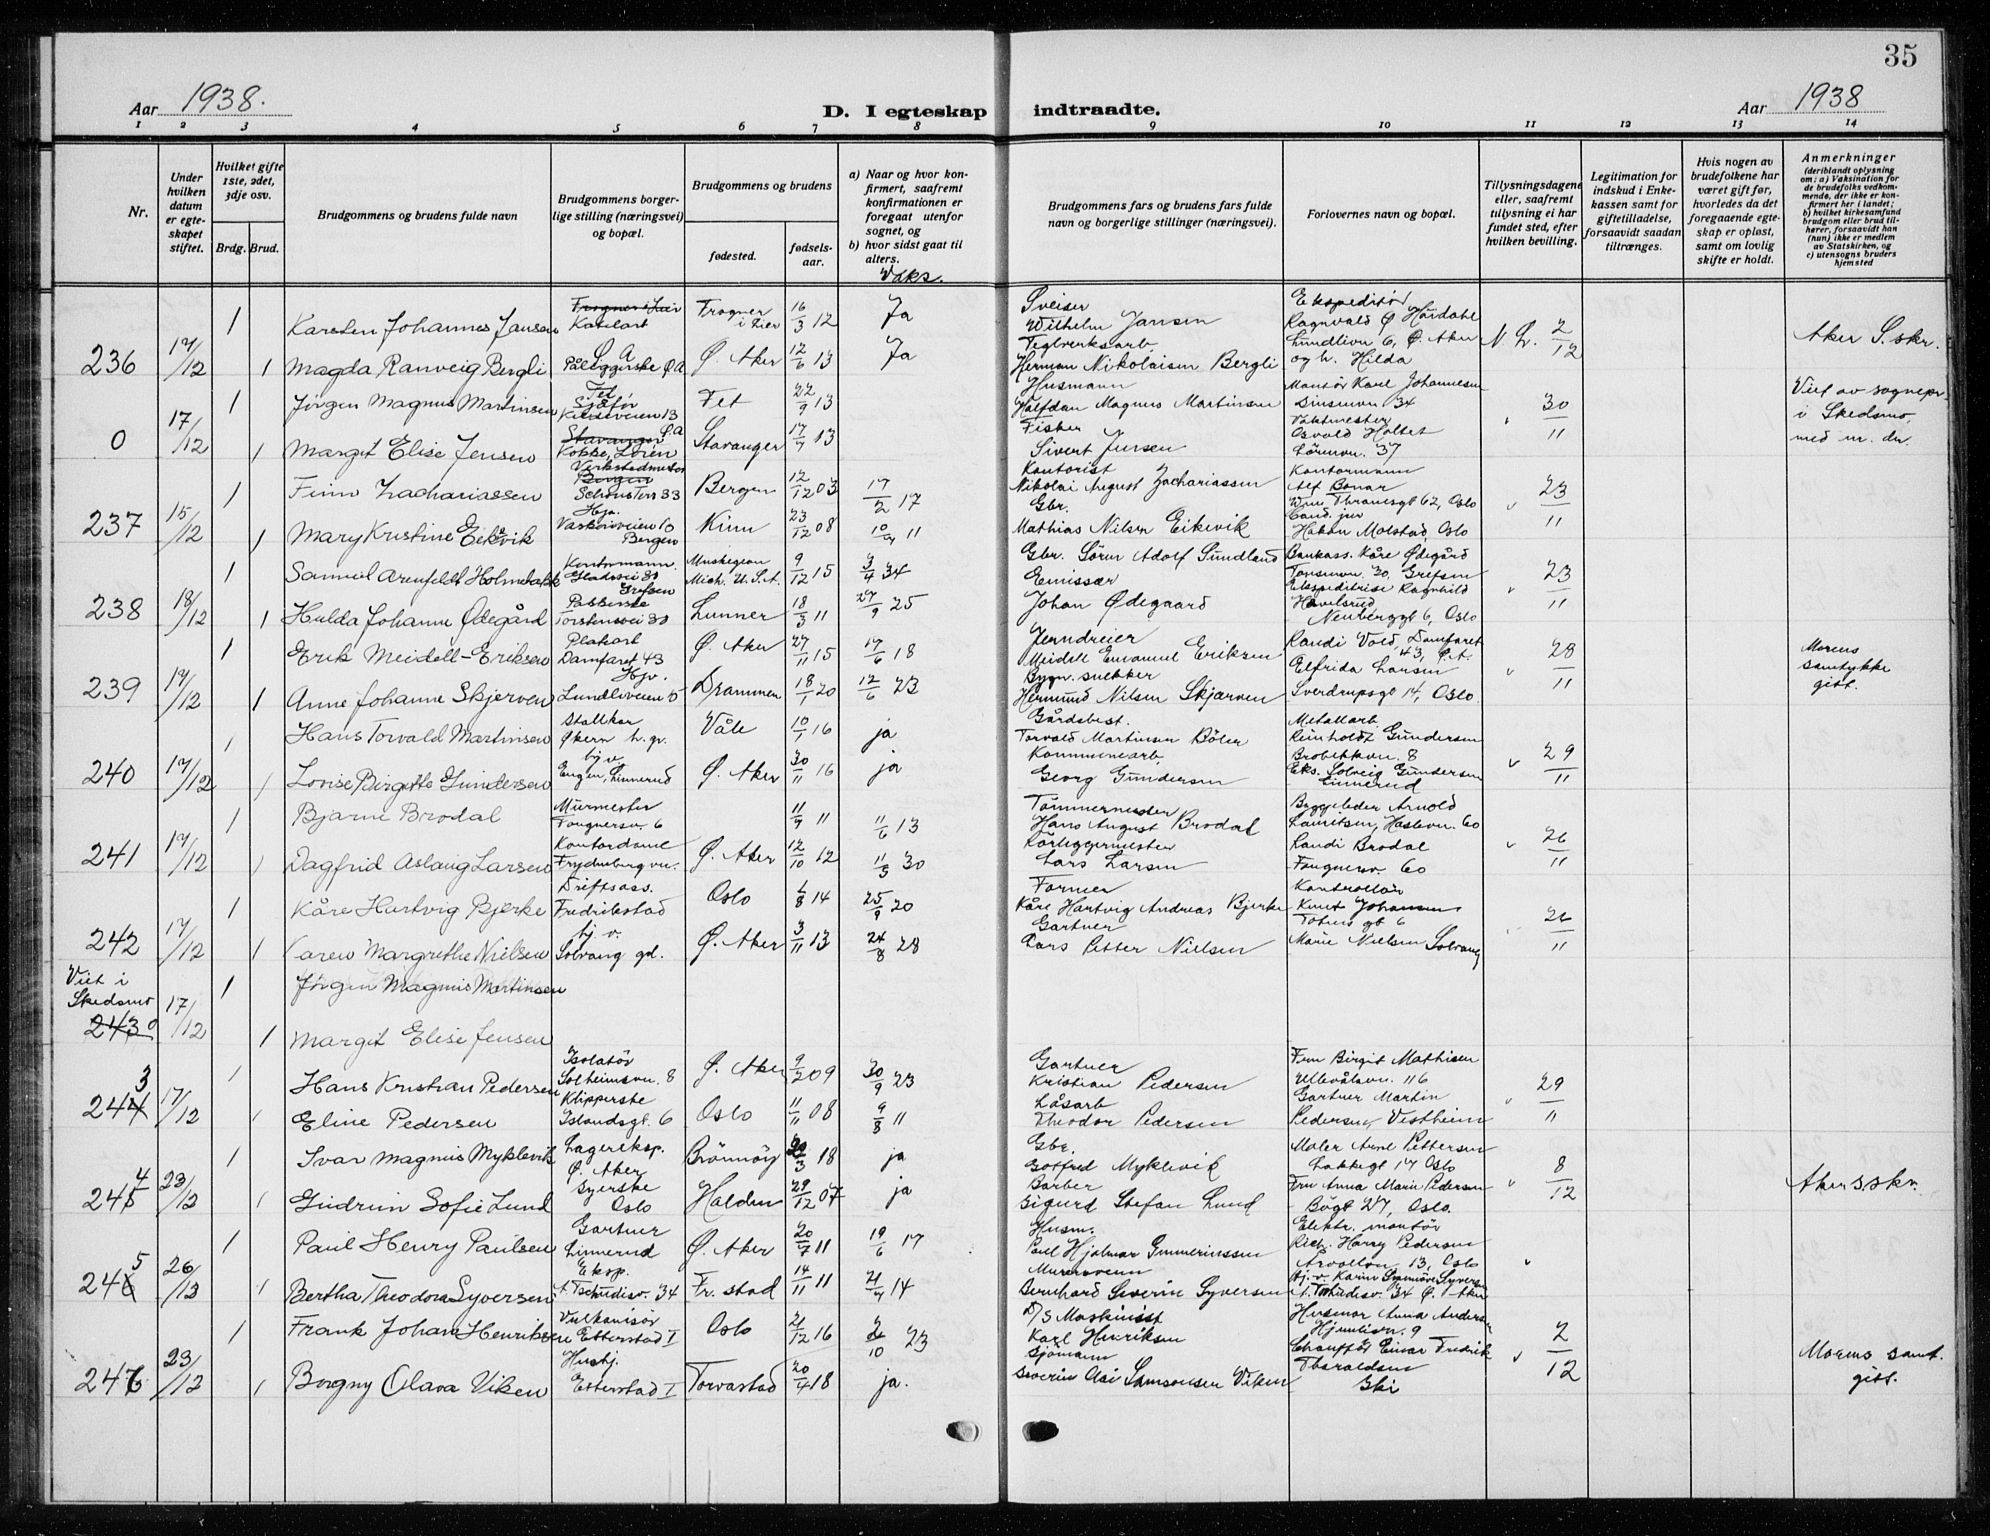 35
Aar 1938.
D. I egteskap indtraadte.
Aar 1938
1 2 3 4 5 6 7 8 9 10 11 12 13 14
Nr.
Under hvilken datum er egteskapet stiftet.
Hvilket gifte 1ste, 2det, 3dje osv.
Brdg. Brud.
Brudgommens og brudens fulde navn
Brudgommens borgerlige stilling (næringsvei) og bopæl.
Brudgommens og brudens
fødested.
fødselsaar.
a) Naar og hvor konfirmert, saafremt konfirmationen er foregaat utenfor sognet, og
b) hvor sidst gaat til alters.
Vaks.
Brudgommens fars og brudens fars fulde navn og borgerlige stillinger (næringsvei).
Forlovernes navn og bopæl.
Tillysningsdagene eller, saafremt tillysning ei har fundet sted, efter hvilken bevilling.
Legitimation for indskud i Enkekassen samt for giftetilladelse, forsaavidt saadan tiltrænges.
Hvis nogen av brudefolkene har været gift før, hvorledes da det foregaaende egteskap er opløst, samt om lovlig skifte er holdt.
Anmerkninger
(deriblandt oplysning om: a) Vaksination for de brudefolks vedkommende, der ikke er konfirmert her i landet; b) hvilket kirkesamfund brudgom eller brud tilhører, forsaavidt han (hun) ikke er medlem av Statskirken, og c) utensogns bruders hjemsted
1 Karsten Johannes Jansen Frogner i Lier 16/3 12 Ja Sveiser Wilhelm Jansen Ekspeditør Ragnvald Ø Høidahl Lundlivn 6, Ø. Aker og h. Hilda 2/12 Aker S. skr.
236 17/12 1 Magda Ranveig Bergli Ø. Aker 12/6 13 Ja Teglverksarb. Herman Nikolaisen Bergli
1 Jörgen Magnus Martinsen Sjåfør Fet 22/9 13 Husmann Halfdan Magnus Martinsen Montør Karl Johannesen 30/11 Viet av sognepr. i Skedsmo, med m. dr.
0 17/12 1 Margit Elise Jensen Stavanger Stavanger 17/7 13 Fisker Sivert Jensen Vaktmester Osvald Holtet Lörenvn. 37
1 Finn Zachariassen Bergen Schous Terr 33 Bergen 12/12 03 17/2 17 Kontorist Nikolai August Zachariassen Kontormann Alf Bonar Wm Thranesgt 62, Oslo 23/11
237 15/12 1 Mary Kristine Eikevik Hjv. Bergen Kinn 23/12 08 10/4 11 Gbr. Mathias Nilsen Eikevik Cand. jur Håkon Molstad, Oslo
1 Samuel Arenfeldt Kontormann Grefsen Muskegeon Mich. U.S.A. 9/12 15 3/4 34 Gbr. Sören Adolf Sundland Bankass. Kåre Ødegård 23/11
238 18/12 1 Hulda Johanne Ødegård Torstensvei 30 Lunner 18/3 11 27/9 25 Emissær Johan Ødegaard Ekspeditrise Ragnhild Havelsrud Neuberggt 6, Oslo
1 Erik Meidell-Eriksen Platearb Damfaret 43 Ø. Aker 27/11 15 17/6 18 Jerndreier Meidell Emanuel Eriksen Randi Vold, Damfaret 43, Ø.A. 28/11 Morens samtykke gitt.
239 17/12 1 Anne Johanne Skjerven Hjv. Lundliveien 5 Drammen 18/1 20 12/6 23 Bygn. snekker Hermund Nilsen Skjærven Elfrida Larsen Sverdrupsgt 14, Oslo
1 Hans Torvald Martinsen Stallkar Økern h. gr. Våle 10/1 16 ja Gårdsbest. Torvald Martinsen Bölen Metallarb. Reinholdt Gundersen Brobekkvn. 8 29/11
240 17/12 1 Lovise Birgitte Gundersen hj v. Engen, Linnerud Ø. Aker 30/11 16 ja Kommunearb. Georg Gundersen Eks. Solveig Gundersen Linnerud
1 Bjarne Brodal Murmester Tougnersv. 6 11/9 11 11/6 13 Tömmermester Hans August Brodal Byggeleder Arnold Lauritsen, Haslevn. 60 26/11
241 17/12 1 Dagfrid Aslaug Larsen Kontordame Frydenberg vn. Ø. Aker 12/10 12 11/5 30 Rörleggermester Lars Larsen Randi Brodal 60
1 Kåre Hartvig Bjerke Driftsass. Fredrikstad Oslo 6/8 14 25/9 20 Former Kåre Hartvig Andreas Bjerke Kontrollør Knut Johansen Totens gt 6 26/11
242 17/12 1 Karen Margrethe Nielsen hj v. Solvang gd. Ø. Aker 3/11 13 24/8 28 Gartner Lars Petter Nielsen Marie Nielsen Solvang
Viet i Skedsmo 1 Jörgen Magnus Martinsen
243 0 17/12 1 Margit Elise Jensen
1 Hans Kristian Pedersen Isolatör Solheimsvn. 8 Ø. Aker 9/2 09 30/9 23 Gartner Kristian Pedersen Frm Birgit Mathisen Ullevålsvn. 116 29/11
3 244 17/12 1 Eline Pedersen Klipperske Islandsgt. 6 Oslo 11/11 08 9/8 11 Låsarb Theodor Pedersen Gartner Martin Pedersen, Vestheim
1 Ivar Magnus Myklevik Lagereksp. Ø. Aker Brönnöy 3 18 ja Gbr. Gotfred Myklevik Maler Arne Pettersen Lakkegt 17 Oslo 8/12 Aker s. skr.
4 245 23/12 1 Gudrun Sofie Lund Syerske Oslo Halden 29/12 07 ja Barber Sigurd Stefan Lund Fru Anna Marie Pedersen Oslo.
1 Paul Henry Paulsen Gartner Linnerud Ø. Aker 20/7 11 19/6 17 Husm. Paul Hjalmar Elektr. montör Rich. Harry Pedersen Arvollvn. 13, Oslo
5 246 26/12 1 Bertha Theodora Syversen Eksp. A. Tschudisv. 34 Fr. stad 14/11 11 21/4 14 Murersvenn Bernhard Severin Syversen Hj. v. Karin Synnöve Syversen A. Tschudisv. 34 Ø. Aker
1 Frank Johan Henriksen Vulkanisör Etterstad I Oslo 21/12 16 2/10 23 D/S Maskinist Karl Henriksen Husmor Anna Andersen Hjemlivn. 9 2/12 Morens samt. gitt.
246 23/12 1 Borgny Olava Viken Hushj. Etterstad I Torvastad 20/4 18 ja. Sjömann Severin Samsonsen Viken Chauffør Einar Fredrik Tharaldsen Ski